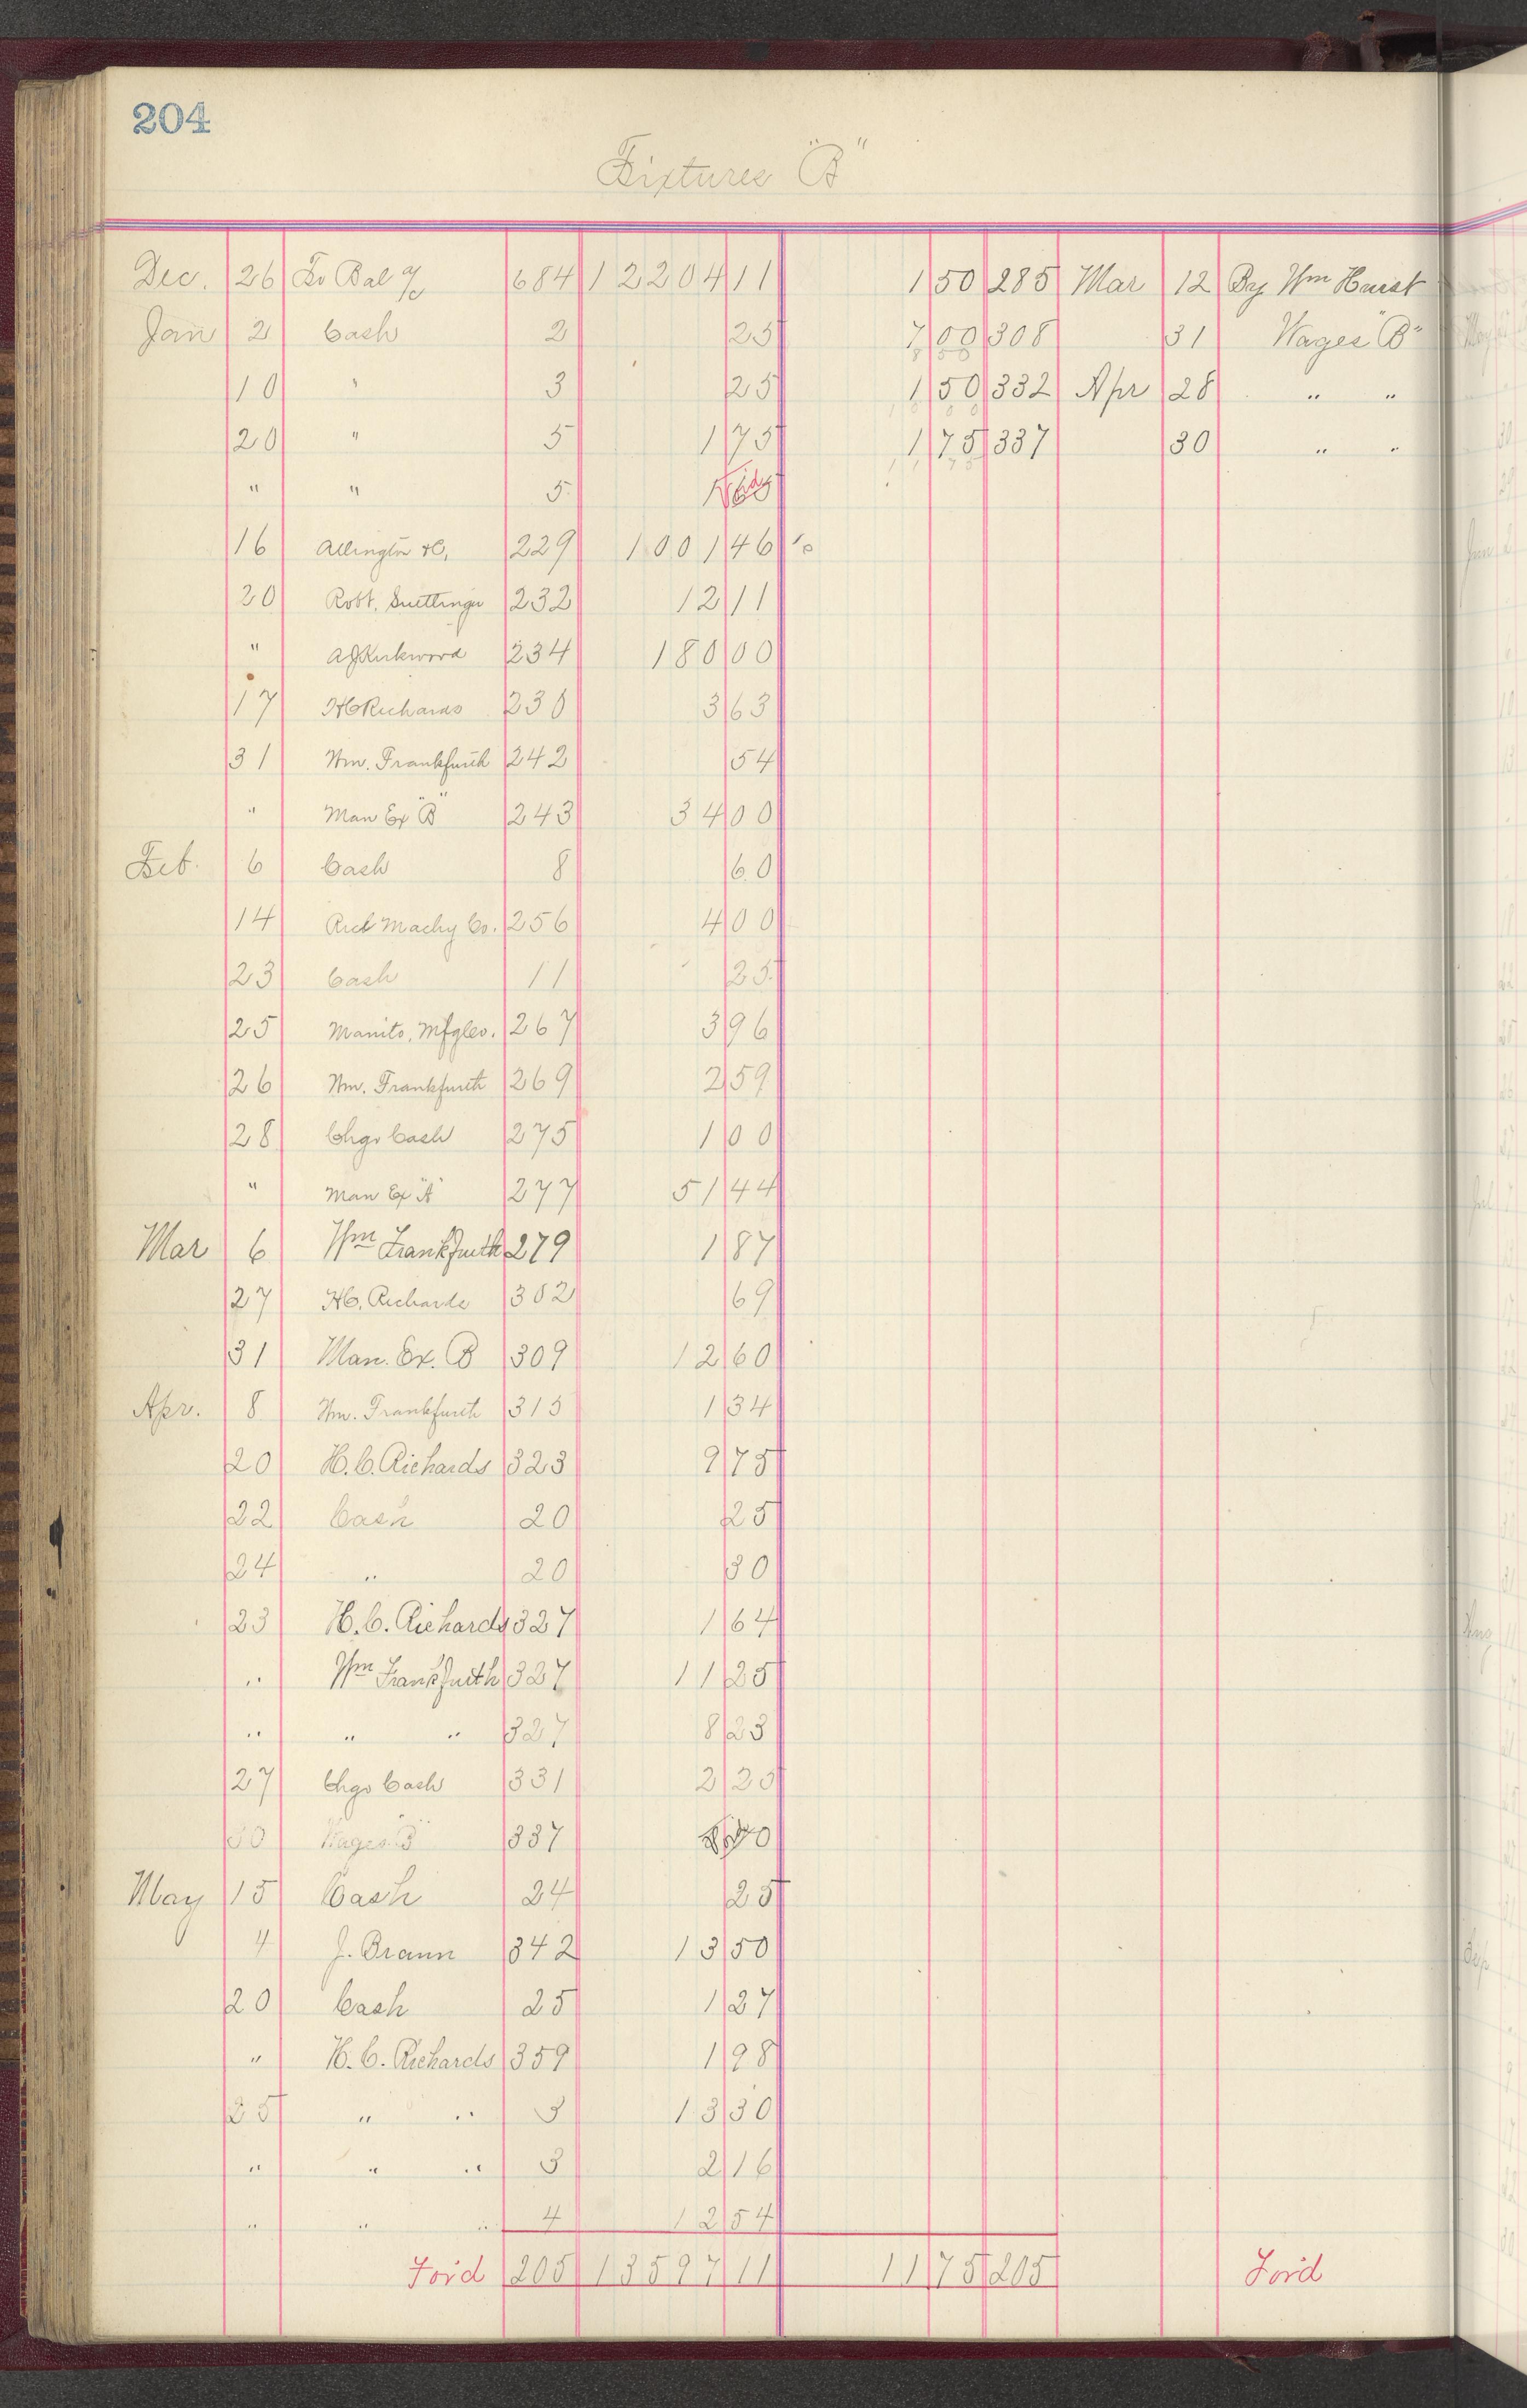 204
Fixtures "B"
Dec. 26 To Bal a/c 684 12204 11 1 50 285 Mar 12 By Wm Hurst
Jan 2 Cash 2 25 7 00 308 31 Wages "B"
10 " 3 25 1 50 332 Apr 28 " "
20 " 5 1 75 1 75 337 30 " "
" " 5 Void
16 Allington & Co, 229 1001 46
20 Robt. Suettinger 232 12 11
" A J Kirkwood 234 180 00
17 H C Richards 230 3 63
31 Wm. Frankfurth 242 54
" Man Ex "B" 243 34 00
Feb. 6 Cash 8 60
14 Rich Machy Co. 256 4 00
23 Cash 11 25
25 Manito. Mfg Co. 267 3 96
26 Wm. Frankfurth 269 2 59
28 Chgo Cash 275 1 00
" Man Ex "A" 277 51 44
Mar 6 Wm Frankfurth 279 1 87
27 H C. Richards 302 69
31 Man. Ex. B 309 12 60
Apr. 8 Wm. Frankfurth 313 1 34
20 H. C. Richards 323 9 75
22 Cash 20 25
24 " 20 30
23 H. C. Richards 327 1 64
" Wm Frankfurth 327 11 25
" " " 327 8 23
27 Chgo Cash 331 2 25
30 Wages "B" 337 Void
May 15 Cash 24 25
4 J. Braun 342 13 50
20 Cash 25 1 27
" H. C. Richards 359 1 98
25 " " 3 13 30
" " " 3 2 16
" " " 4 12 54
For'd 205 13597 11 11 75 205 For'd